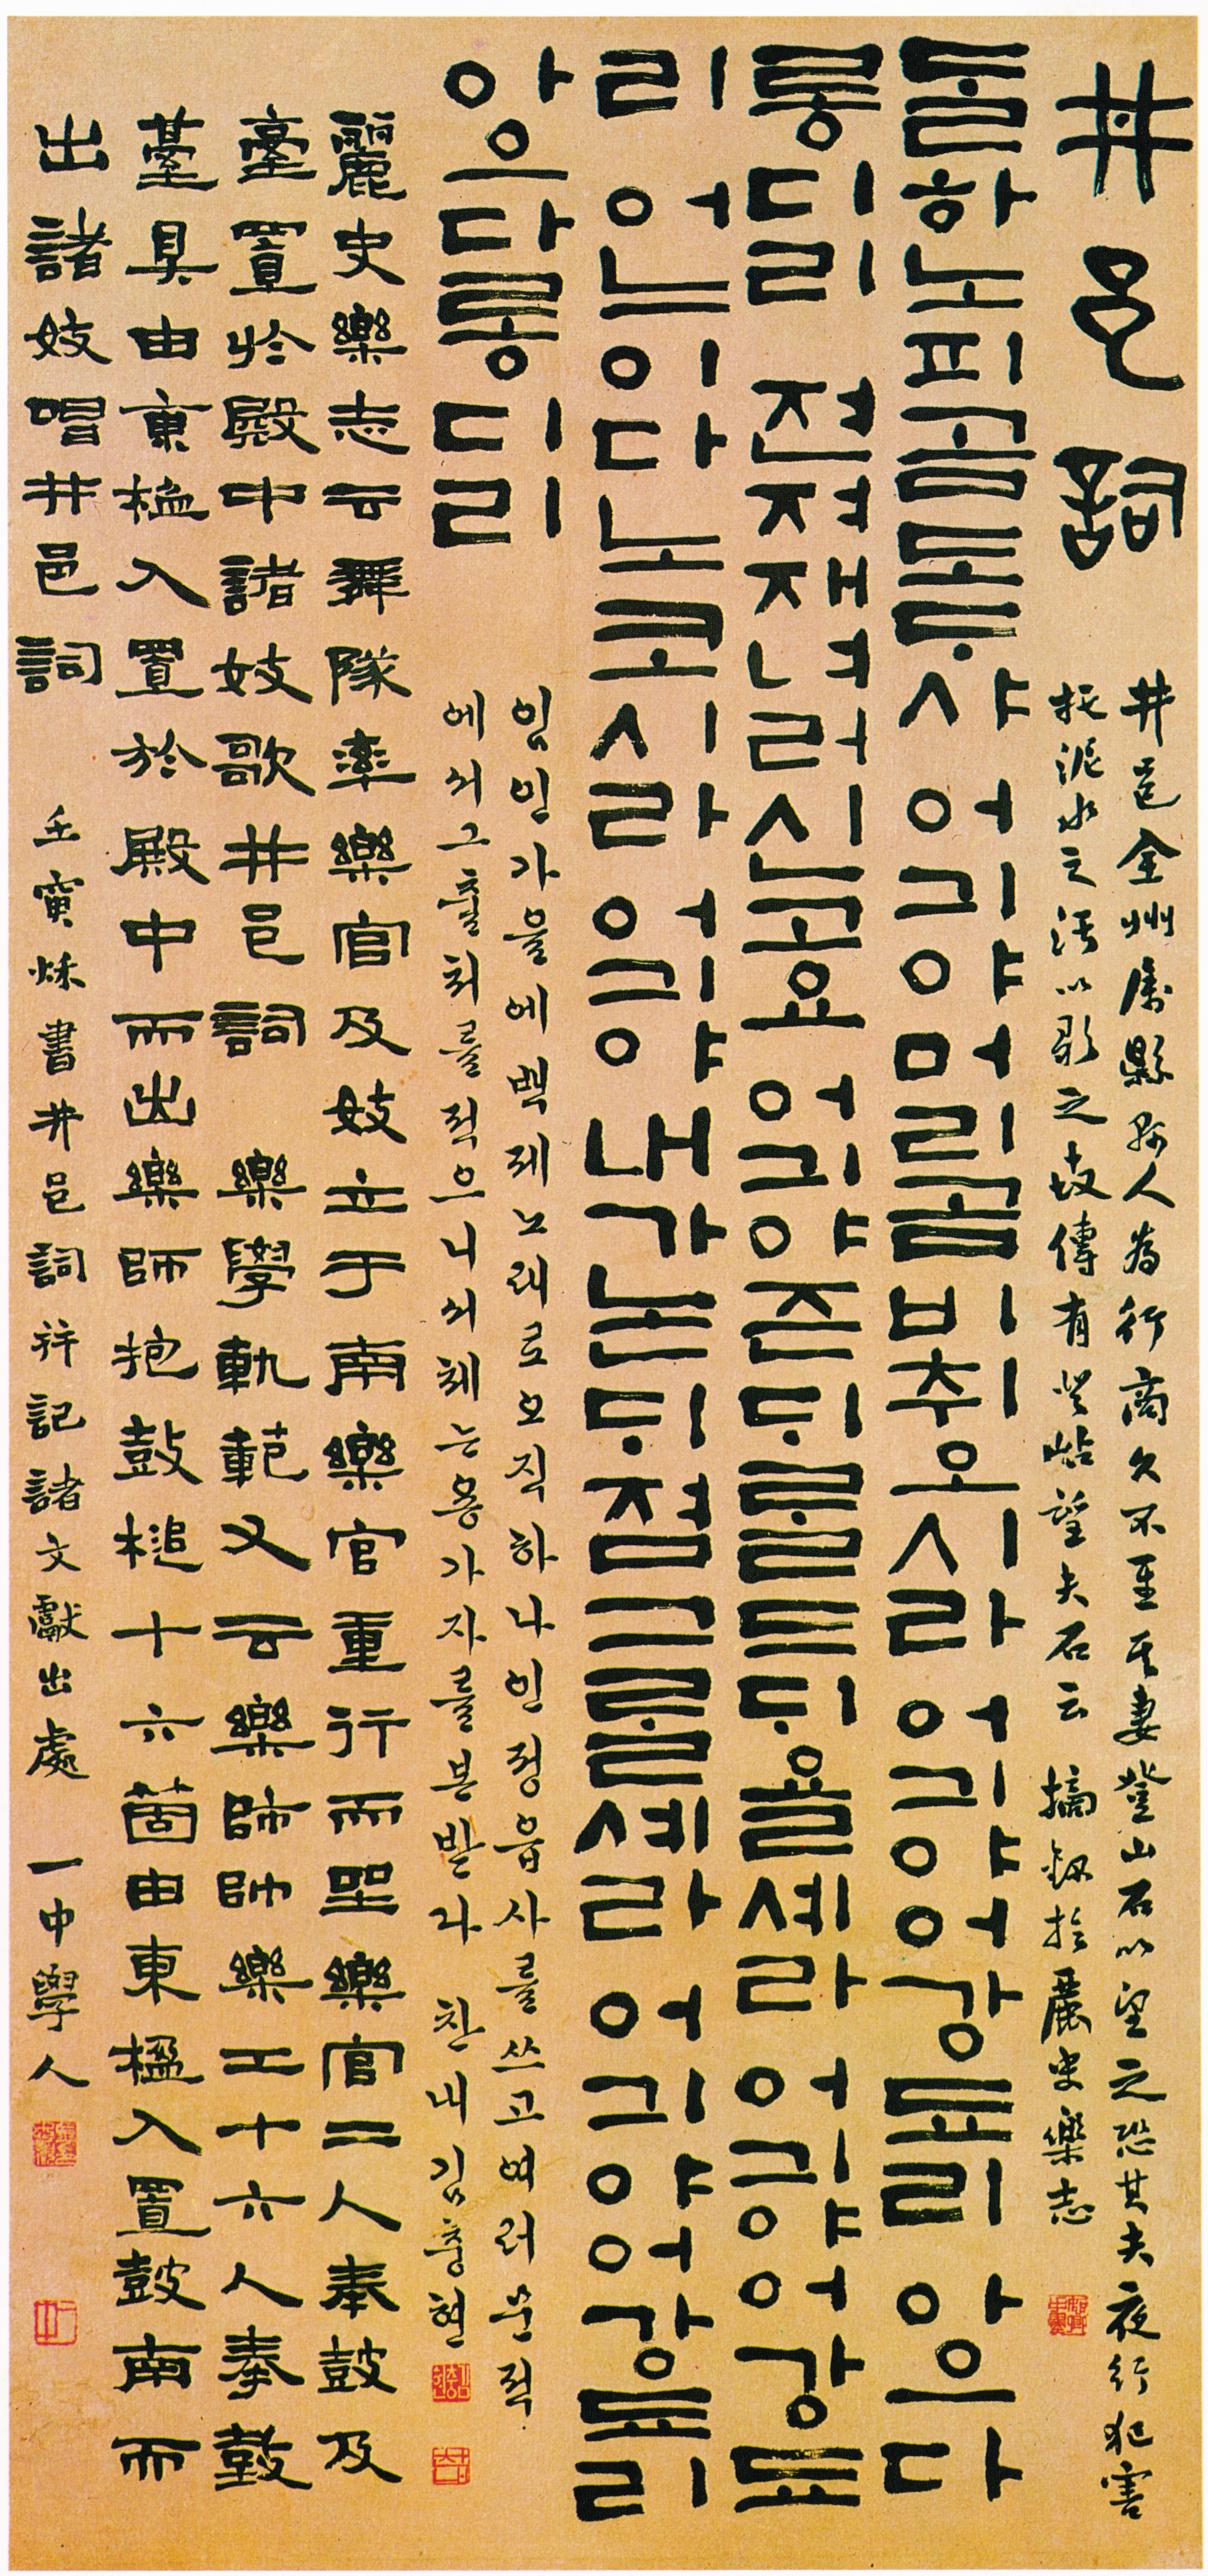 井邑詞
井邑全州屬縣縣人為行商久不至其妻登山石以望之恐其夫夜行犯害
托泥水之汚以歌之世傳有登岾望夫石云 摘錄於麗史樂志
ᄃᆞᆯ하노피곰도ᄃᆞ샤 어긔야머리곰비취오시라 어긔야어강됴리 아으다
롱디리 젼져재녀러신고요 어긔야즌ᄃᆡᄅᆞᆯ드ᄃᆡ욜셰라 어긔야어강됴
리 어느이다노코시라 어긔야내가논ᄃᆡ졈그ᄅᆞᆯ셰라 어긔야어강됴리
아으다롱디리
임인가을에백제노래로오직하나인정읍사를쓰고여러문적
에서그출처를적으니서체는용가자를본받다 찬내김충현
麗史樂志云舞隊率樂官及妓立于南樂官重行而坐樂官二人奉鼓及
臺置於殿中諸妓歌井邑詞 樂學軌範又云樂師帥樂工十六人奉鼓
臺具由東楹入置於殿中而出樂師抱鼓槌十六箇由東楹入置鼓南而
出諸妓唱井邑詞 壬寅秋書井邑詞并記諸文獻出處 一中學人